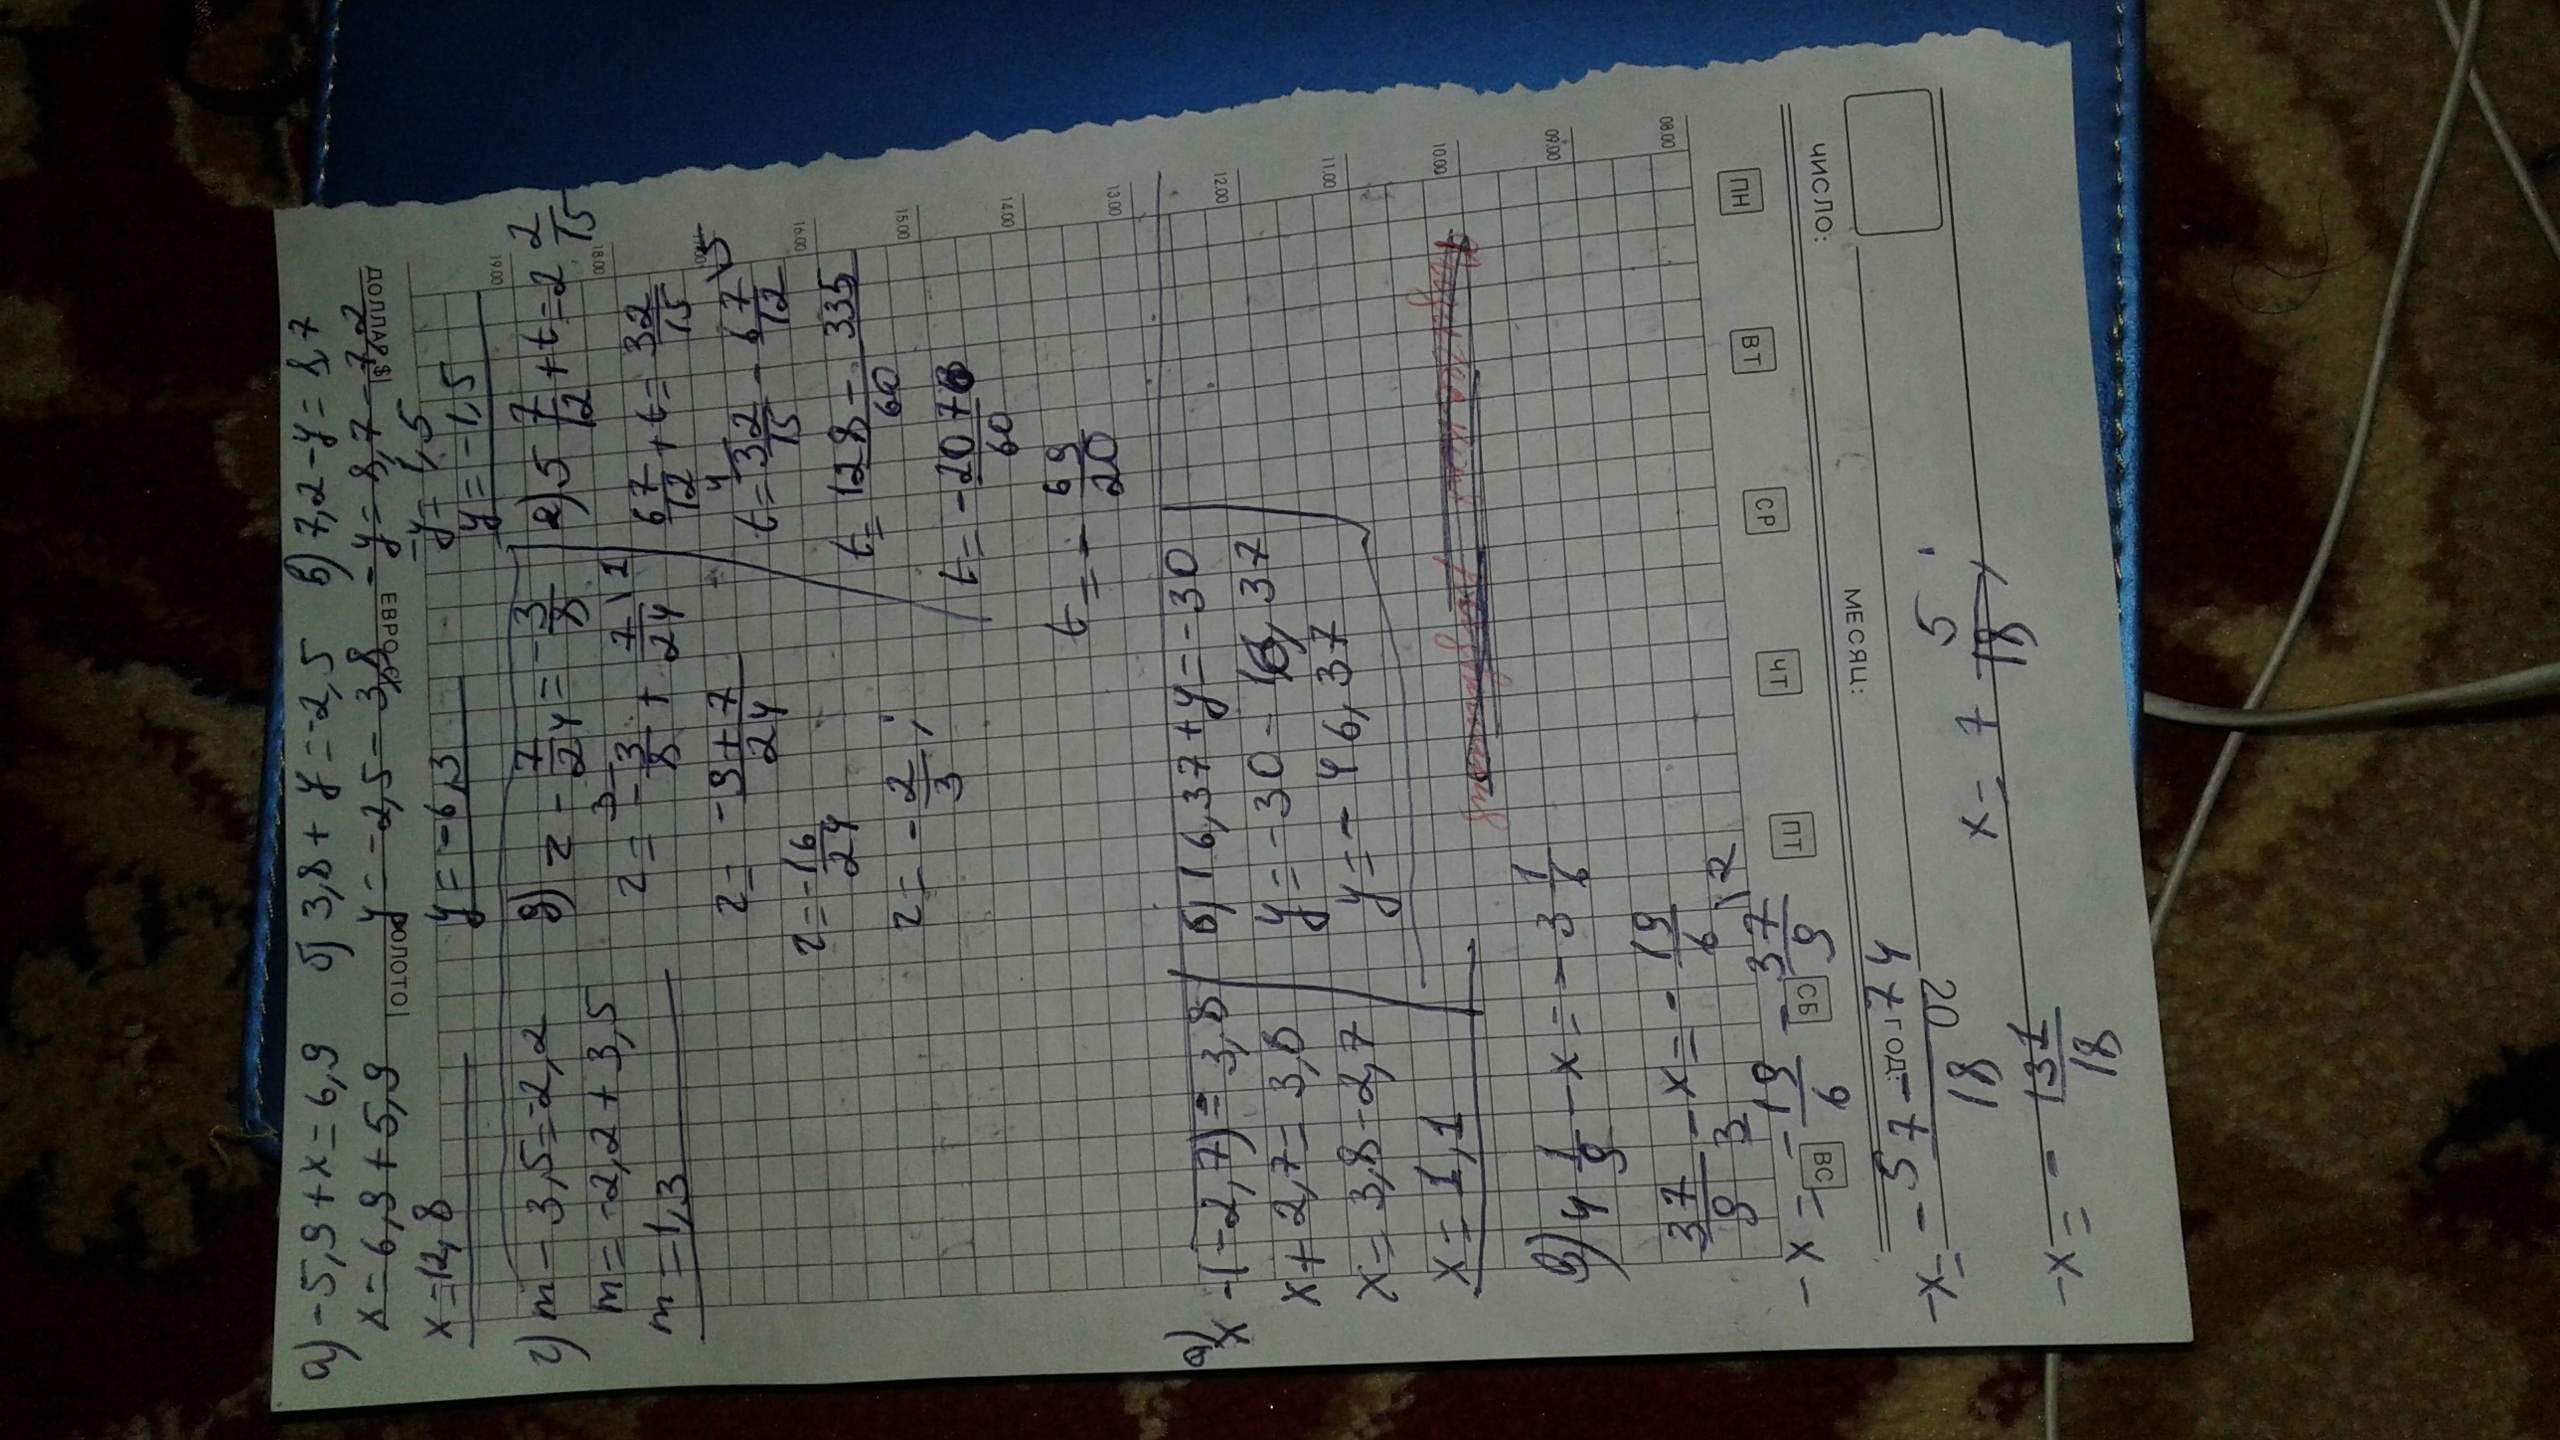 а) -5,9+x=6,9 б) 3,8+y=-2,5 в) 7,2-y=8,7
x=6,9+5,9 y=-2,5-3,8 -y=8,7-7,2
ЗОЛОТО ЕВРО € ДОЛЛАР $
x=12,8 y=-6,3 -y=1,5
y=-1,5
г) m-3,5=-2,2 д) z-7/24=-3/8 е) 5 7/12+t=2 2/15
m=-2,2+3,5 z=-3/8+7/24 67/12+t=32/15
m=1,3 z=-9+7/24 t=32/15-67/12
z=-16/24 t=128-335/60
z=-2/3; t=-207/60
t=-69/20
19.00
18.00
16.00
15.00
14.00
13.00
12.00
11.00
10.00
09.00
08.00
а) x-(-2,7)=3,8 б) 16,37+y=-30
x+2,7=3,8 y=-30-16,37
x=3,8-2,7 y=-46,37
x=1,1
в) 4 1/9-x=-3 1/6
37/9-x=-19/6
-x=-19/6-37/9
ВС СБ ПТ ЧТ СР ВТ ПН
ГОД: МЕСЯЦ: ЧИСЛО:
-x=-57-74/18
20
-x=-131/18 x=7 5/18;